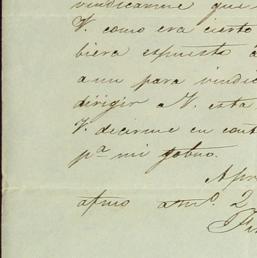 vindicarme que
V. como era cierto
biera expuesto á
aun para vindic
dirigir a V. esta
V. decirme en cont
pª mi gobno.
Apro
afmo amº. 2